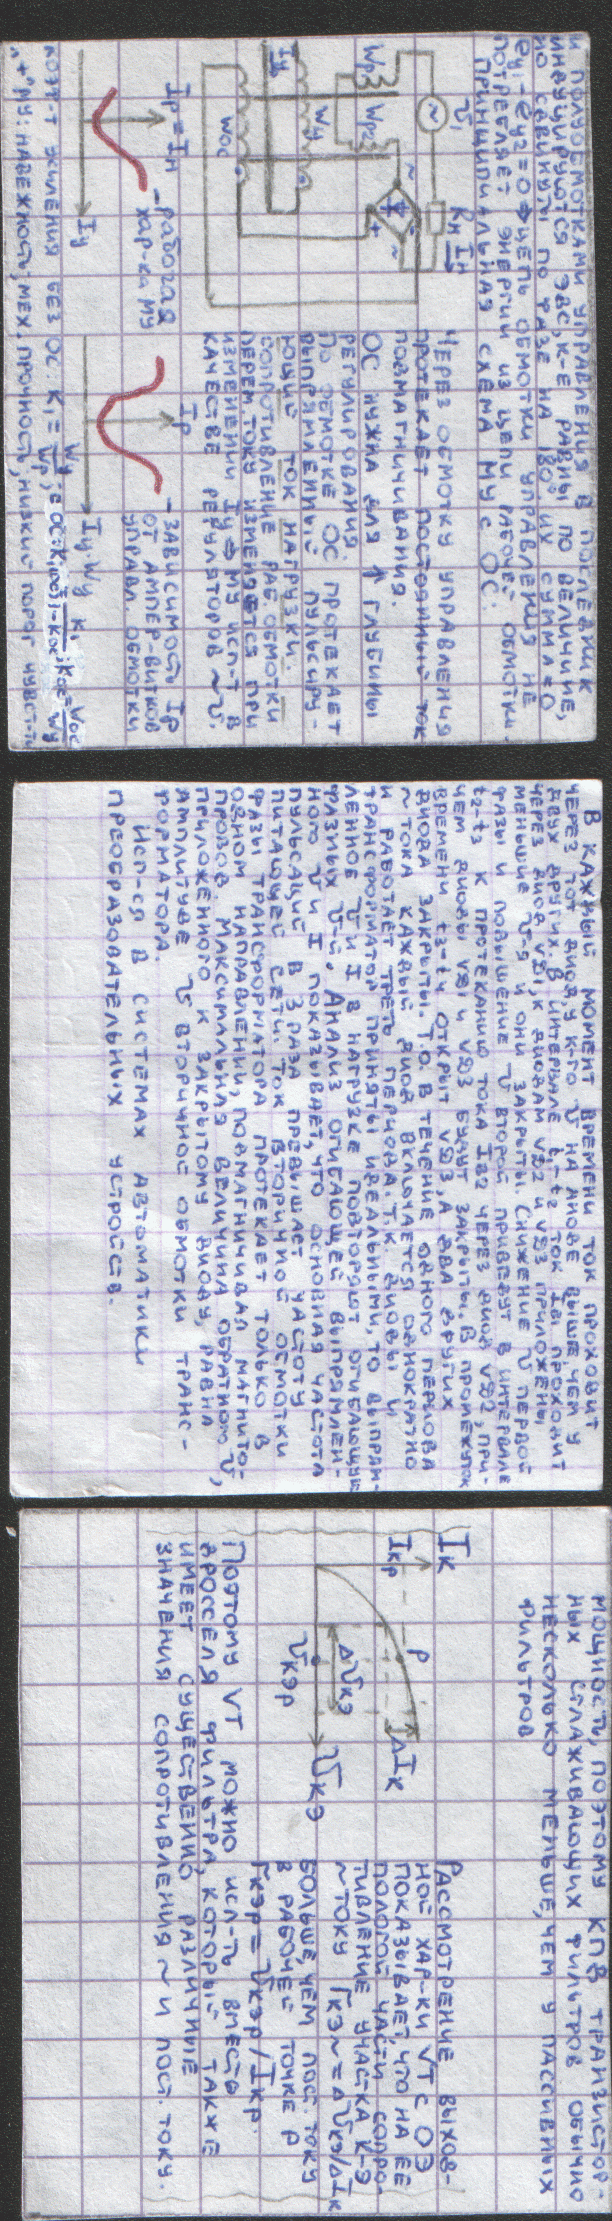 и полуобмотками управления в последн.к
индуцируются ЭДС, к-е равны по величине,
но сдвинуты по фазе на 180°. их сумма = 0
eу1-eу2=0 ⇒ цепь обмотки управления не
потребляет энергии из цепи рабочей обмотки.
Принципиальная схема МУ с ОС:
~ U1 Rн Iн
Wp1 Wp2
~ ~ + -
Iу Wу
Wос
Через обмотку управления
протекает постоянный ток
подмагничивания.
ОС нужна для ↑ глубины
регулирования.
По обмотке ОС протекает
выпрямленный пульсиру-
ющий ток нагрузки.
Сопротивление раб обмотки
перем. току изменяется при
изменении Iу ⇒ МУ исп-т в
качестве регуляторов ~U.
Iр=Iн
- рабочая
хар-ка МУ
Iу
Iр
- зависимость Iр
от ампер-витков
управл. обмотки
Iу·Wу
коэф-т усиления без ОС: K1 = Wу/Wр; с ОС: K1(ос) = K1/1-Kос; Kос = Wос/Wу
"+" МУ: надежность, мех. прочность, низкий порог чувст-ти
В каждый момент времени ток проходит
через тот диод у к-го U на аноде выше, чем у
двух других. В интервале t1-t2 ток Iв проходит
через диод VD1, к диодам VD2 и VD3 приложены
меньшие U-я и они закрыты. Снижение U первой
фазы и повышение U второй приведут в интервале
t2-t3 к протеканию тока Iв2 через диод VD2, при-
чем диоды VD1 и VD3 будут закрыты. В промежуток
времени t3-t4 открыт VD3, а два других
диода закрыты. Т.о. в течение одного периода
~ тока каждый диод включается однократно
и работает треть периода. Т.к. диоды и
трансформатор приняты идеальными, то выпрям-
ленное U и I в нагрузке повторяют огибающую
фазных U-й. Анализ огибающей выпрямлен-
ного U и I показывает, что основная частота
пульсаций в 3 раза превышает частоту
питающей сети. Ток вторичной обмотки
фазы трансформатора протекает только в
одном направлении, подмагничивая магнито-
провод. Максимальная величина обратного U,
приложенного к закрытому диоду, равна
амплитуде U вторичной обмотки транс-
форматора.
Исп-ся в системах автоматики
преобразовательных устройств.
мощность, поэтому КПД транзистор-
ных сглаживающих фильтров обычно
несколько меньше, чем у пассивных
фильтров
Iк
Iкр
P
ΔIк
ΔUкэ
Uкэр
Uкэ
Рассмотрение выход-
ной хар-ки VT с ОЭ
показывает, что на ее
пологой части сопро-
тивление участка к-э
~току rкэ~ = ΔUкэ/ΔIк
больше, чем пост. току
в рабочей точке P
rкэр = Uкэр/Iкр.
Поэтому VT можно исп-ть вместо
дросселя фильтра, который также
имеет существенно различные
значения сопротивления ~ и пост. току.